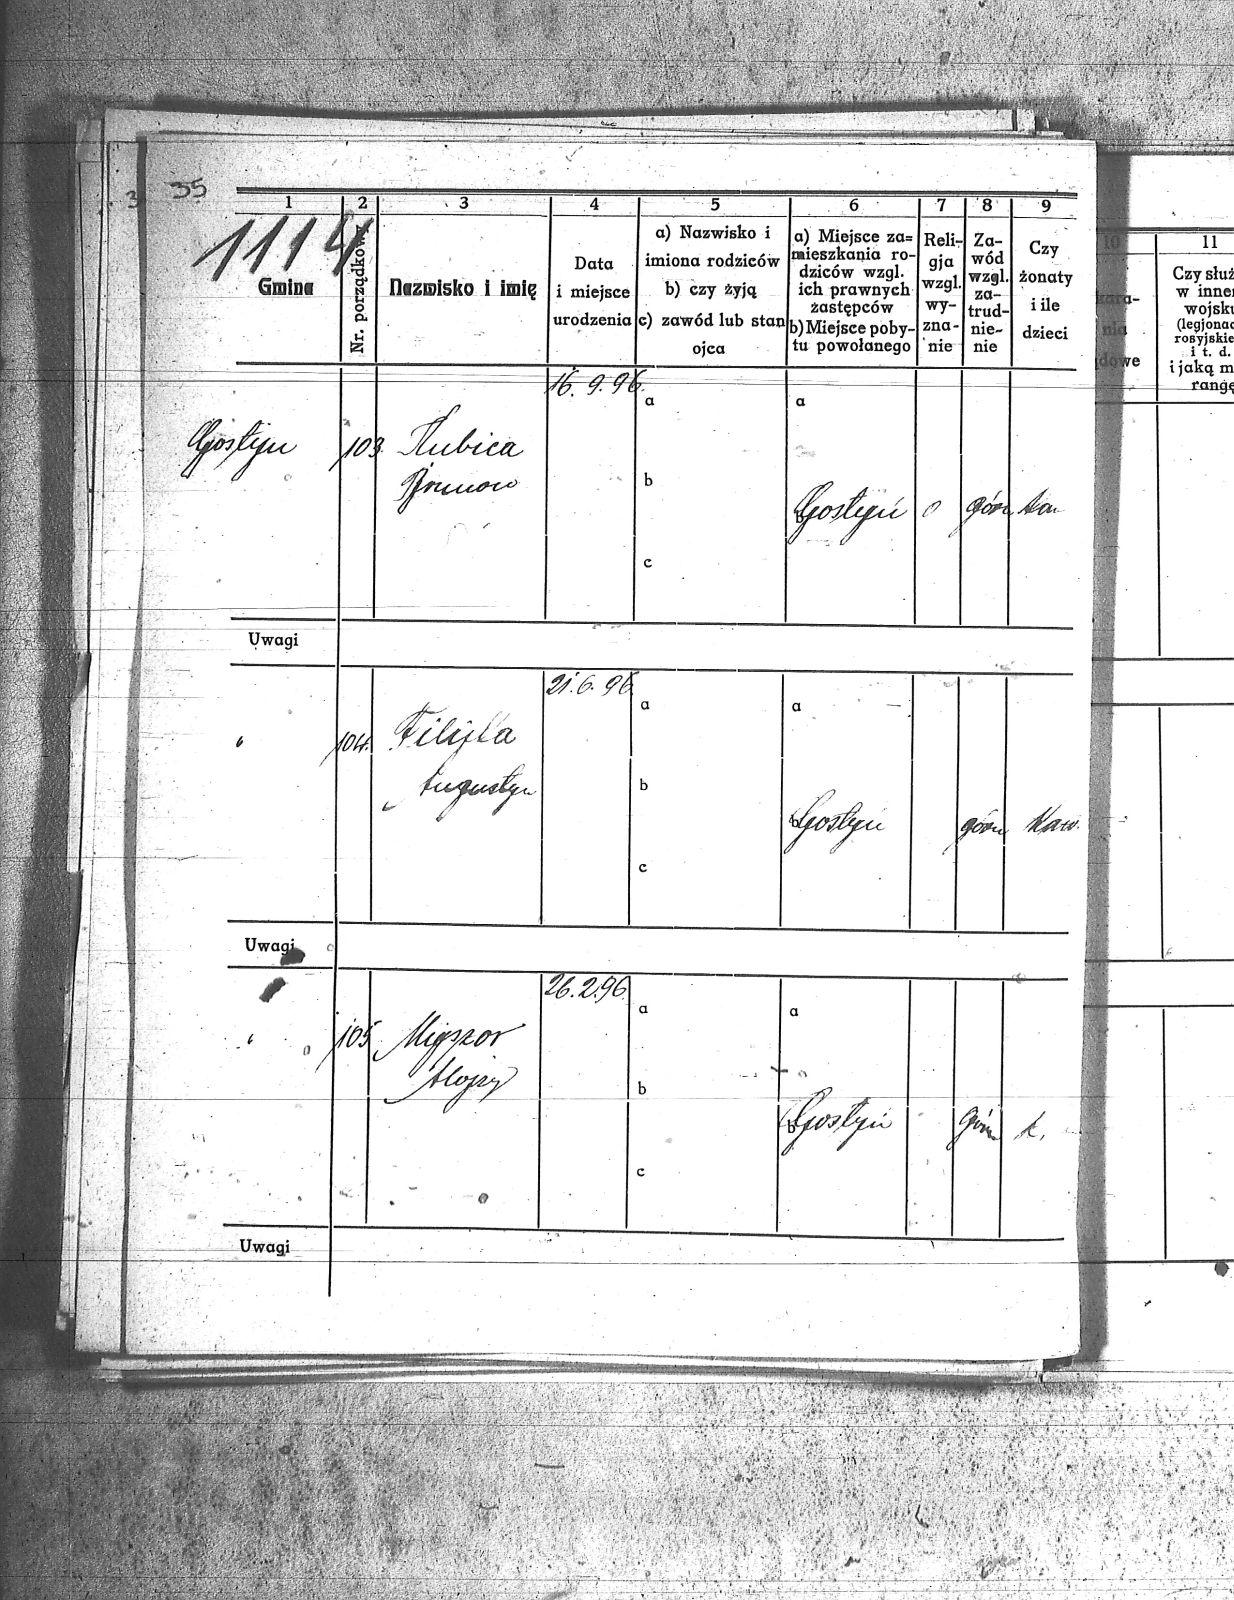 35
1114
1
2
3
4
5
6
7
8
9
10
11
Gmina
Nr. porządkowy
Nazwisko i imię
Data
i miejsce
urodzenia
a) Nazwisko i
imiona rodziców
b) czy żyją
c) zawód lub stan
ojca
a) Miejsce za=
mieszkania ro-
dziców wzgl.
ich prawnych
zastępców
b) Miejsce poby-
tu powołanego
Reli-
gja
wzgl.
wy-
zna-
nie
Za-
wód
wzgl.
za-
trud-
nie-
nie
Czy
żonaty
i ile
dzieci
kara-
nia
dowe
Czy służ
w inner
wojsku
(legjonac
rosyjskie
i t. d.
i jaką m
rangę
16. 9. 96.
a
a
Gostyń 103.
b
b Gostyń
c
Uwagi
21. 6. 96.
a
a
104.
Augustyn
b
b Gostyń górn Kaw.
c
Uwagi
26. 2. 96.
a
a
105 Migszor
Alojzy
b
b Gostyń górn k.
c
Uwagi